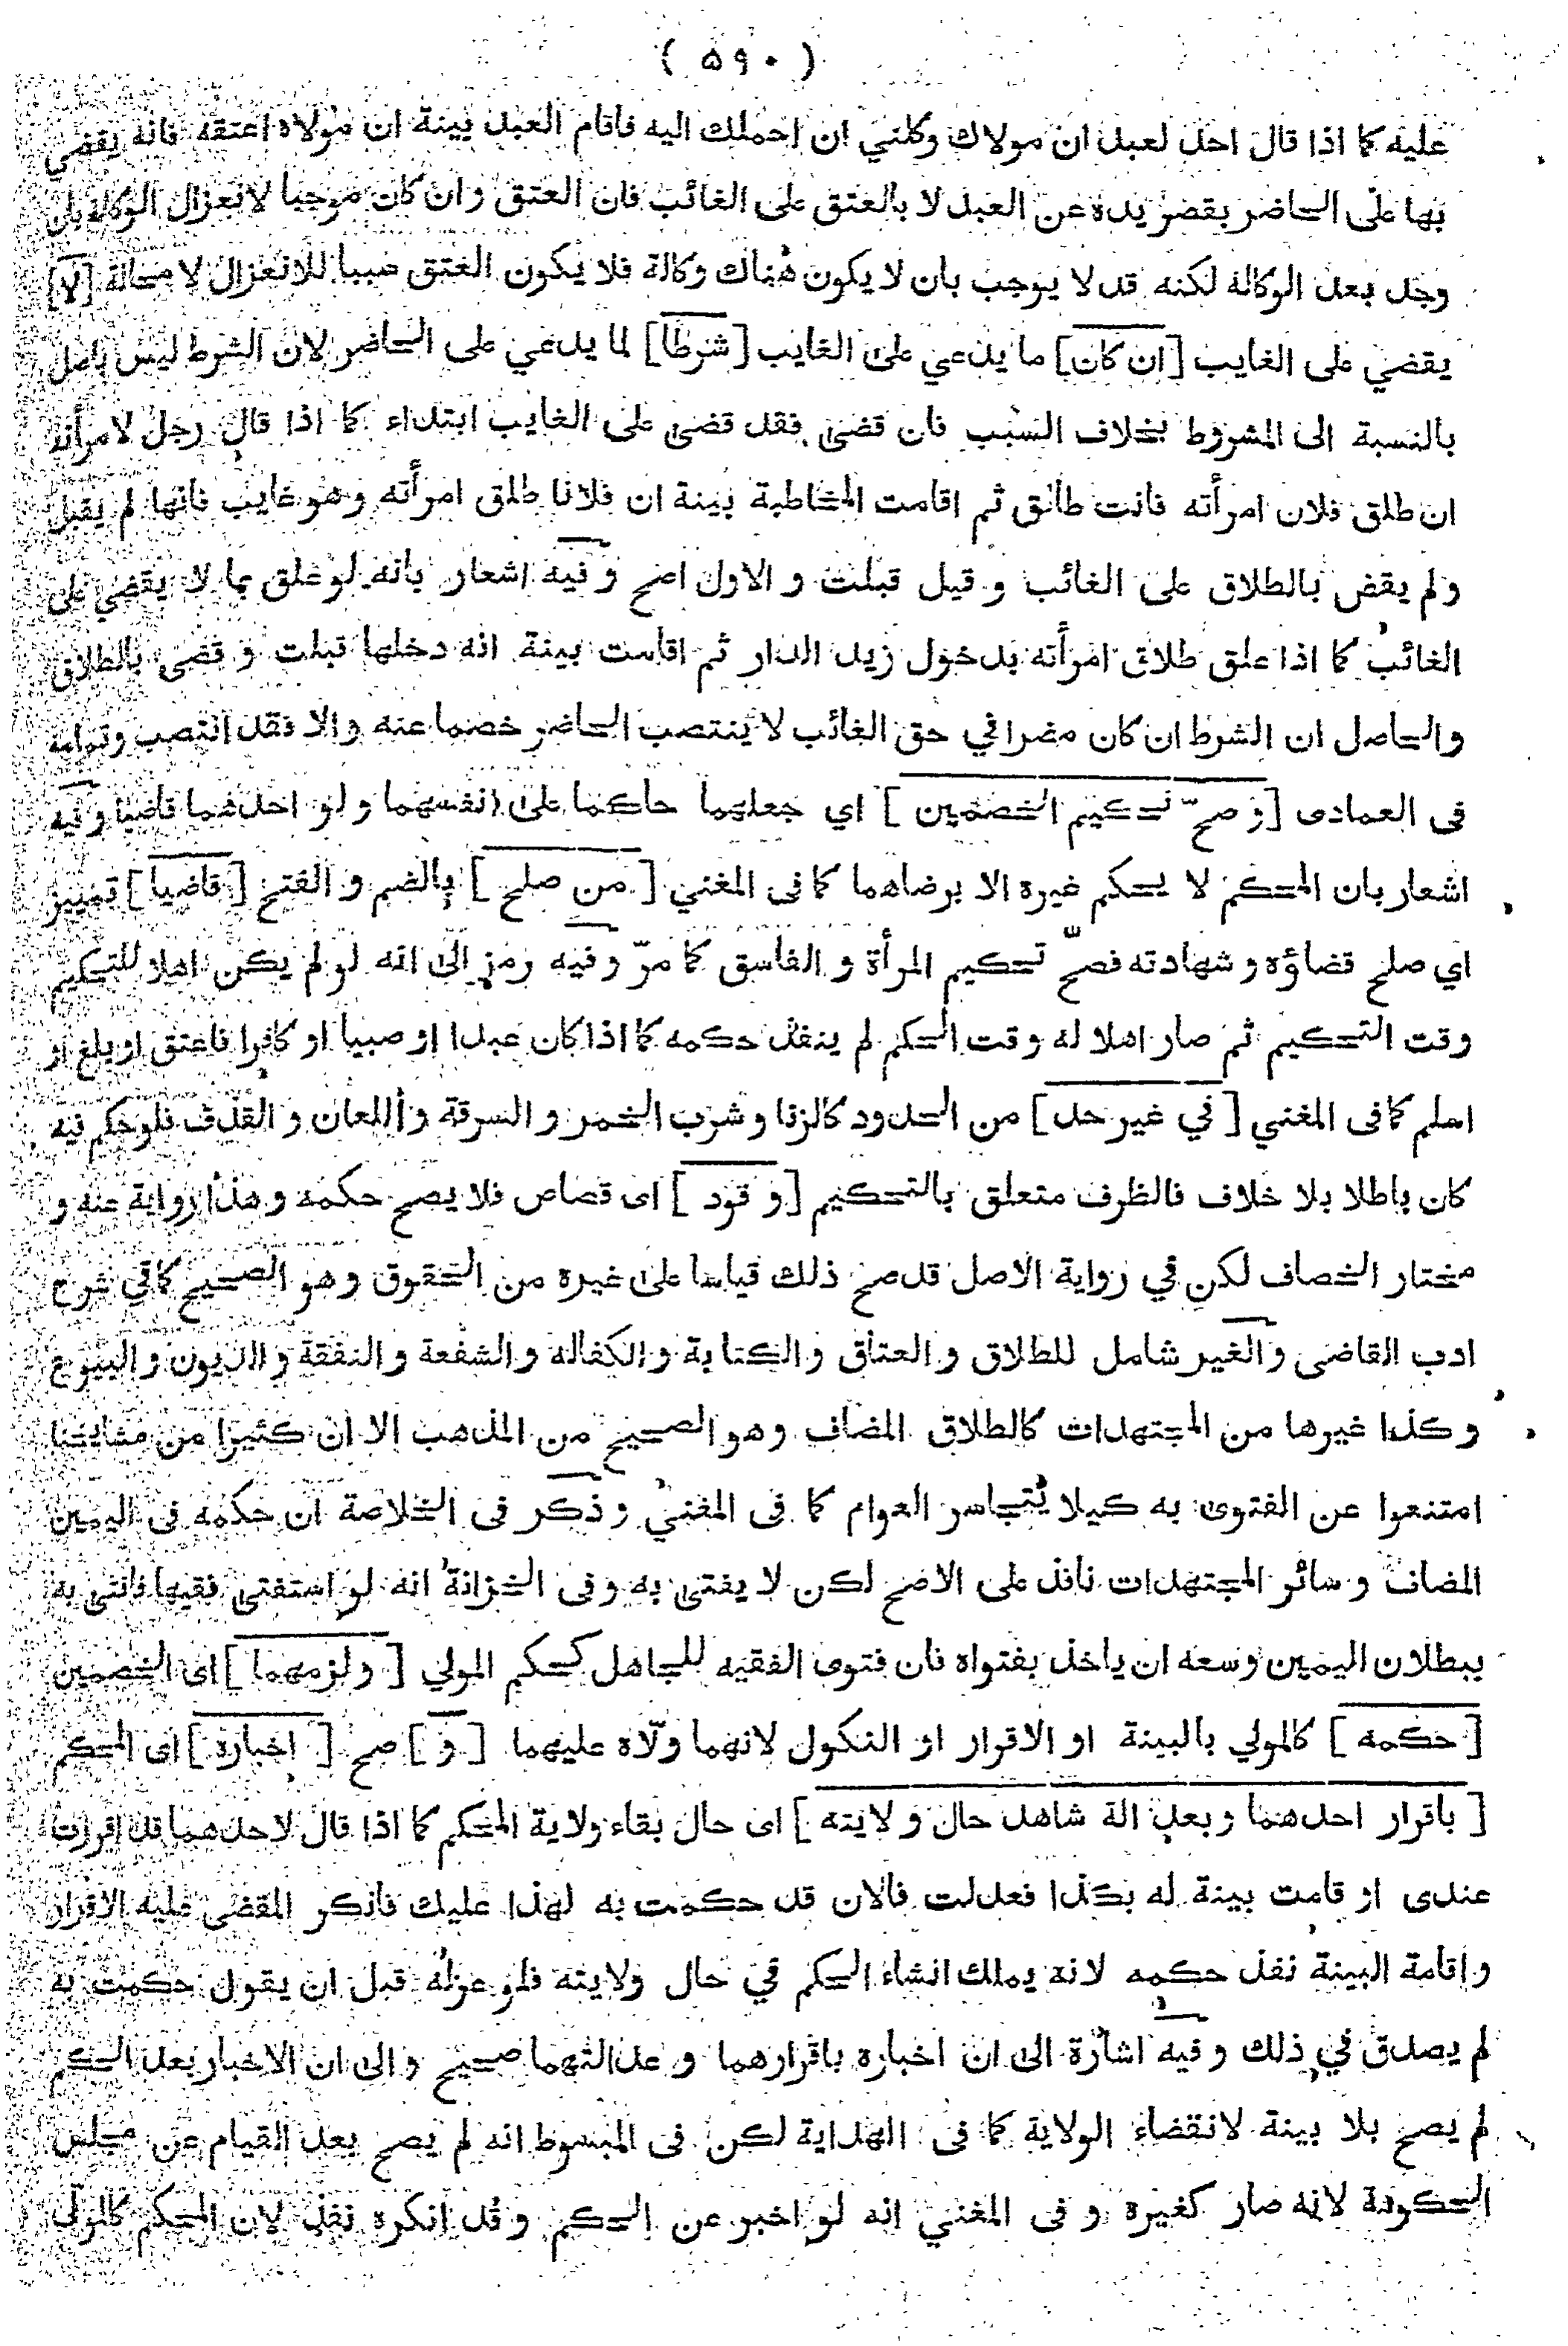 ( ۵۹۰ )
عليه كما اذا قال احد لعبد ان مولاك وكلني ان احملك اليه فاقام العبد بينة ان مولاه اعتقه فانه يقضي
بها على الحاضر بقصر يده عن العبد لا بالعتق على الغائب فان العتق وان كان موجبا لانعزال الوكالة بان
وجد بعد الوكالة لكنه قد لا يوجب بان لا يكون هناك وكالة فلا يكون العتق سببا للانعزال لا محالة [لا]
يقضي على الغايب [ان كان] ما يدعي على الغايب [شرطا] لما يدعي على الحاضر لان الشرط ليس باصل
بالنسبة الى المشروط بخلاف السبب فان قضى فقد قضى على الغايب ابتداء كما اذا قال رجل لامرأته
ان طلق فلان امرأته فانت طالق ثم اقامت المخاطبة بينة ان فلانا طلق امرأته وهو غايب فانها لم يقبل
ولم يقض بالطلاق على الغائب و قيل قبلت و الاول اصح و فيه اشعار بانه لو علق بما لا يقضي على
الغائب كما اذا علق طلاق امرأته بدخول زيد الدار ثم اقامت بينة انه دخلها قبلت و قضى بالطلاق
والحاصل ان الشرط ان كان مضرا في حق الغائب لا ينتصب الحاضر خصما عنه والا فقد انتصب وتمامه
فى العمادى [و صحّ تحكيم الخصمين] اي جعلهما حاكما على انفسهما و لو احدهما قاضيا و فيه
اشعار بان المحكم لا يحكم غيره الا برضاهما كما فى المغني [من صلح] بالضم و الفتح [قاضيا] تمييز
اي صلح قضاؤه و شهادته فصحّ تحكيم المرأة و الفاسق كما مرّ و فيه رمز الى انه لو لم يكن اهلا للتحكيم
وقت التحكيم ثم صار اهلا له وقت الحكم لم ينفذ حكمه كما اذا كان عبدا او صبيا او كافرا فاعتق او بلغ او
اسلم كما فى المغني [في غير حد] من الحدود كالزنا و شرب الخمر و السرقة و اللعان و القذف فلو حكم فيه
كان باطلا بلا خلاف فالظرف متعلق بالتحكيم [و قود] اى قصاص فلا يصح حكمه و هذا رواية عنه و
مختار الخصاف لكن في رواية الاصل قد صح ذلك قياسا على غيره من الحقوق و هو الصحيح كما في شرح
ادب القاضى و الغير شامل للطلاق و العتاق و الكتابة و الكفالة و الشفعة و النفقة و الديون و البيوع
و كذا غيرها من المجتهدات كالطلاق المضاف و هو الصحيح من المذهب الا ان كثيرا من مشايخنا
امتنعوا عن الفتوى به كيلا يتجاسر العوام كما فى المغني و ذكر فى الخلاصة ان حكمه فى اليمين
المضاف و سائر المجتهدات نافذ على الاصح لكن لا يفتى به و فى الخزانة انه لو استفتى فقيها فافتى به
ببطلان اليمين وسعه ان ياخذ بفتواه فان فتوى الفقيه للجاهل كحكم المولي [و لزمهما] اى الخصمين
[حكمه] كالمولي بالبينة او الاقرار او النكول لانهما ولّاه عليهما [و] صح [اخباره] اى المحكم
[باقرار احدهما و بعد الة شاهد حال و لايته] اى حال بقاء ولاية المحكم كما اذا قال لاحدهما قد اقررت
عندى او قامت بينة له بكذا فعدلت فالان قد حكمت به لهذا عليك فانكر المقضى عليه الاقرار
و اقامة البينة نفذ حكمه لانه يملك انشاء الحكم في حال ولايته فلو عزله قبل ان يقول حكمت به
لم يصدق في ذلك و فيه اشارة الى ان اخباره باقرارهما و عدالتهما صحيح و الى ان الاخبار بعد الحكم
لم يصح بلا بينة لانقضاء الولاية كما فى الهداية لكن فى المبسوط انه لم يصح بعد القيام عن مجلس
الحكومة لانه صار كغيره و فى المغني انه لو اخبر عن الحكم و قد انكره نفذ لان المحكم كالمولى